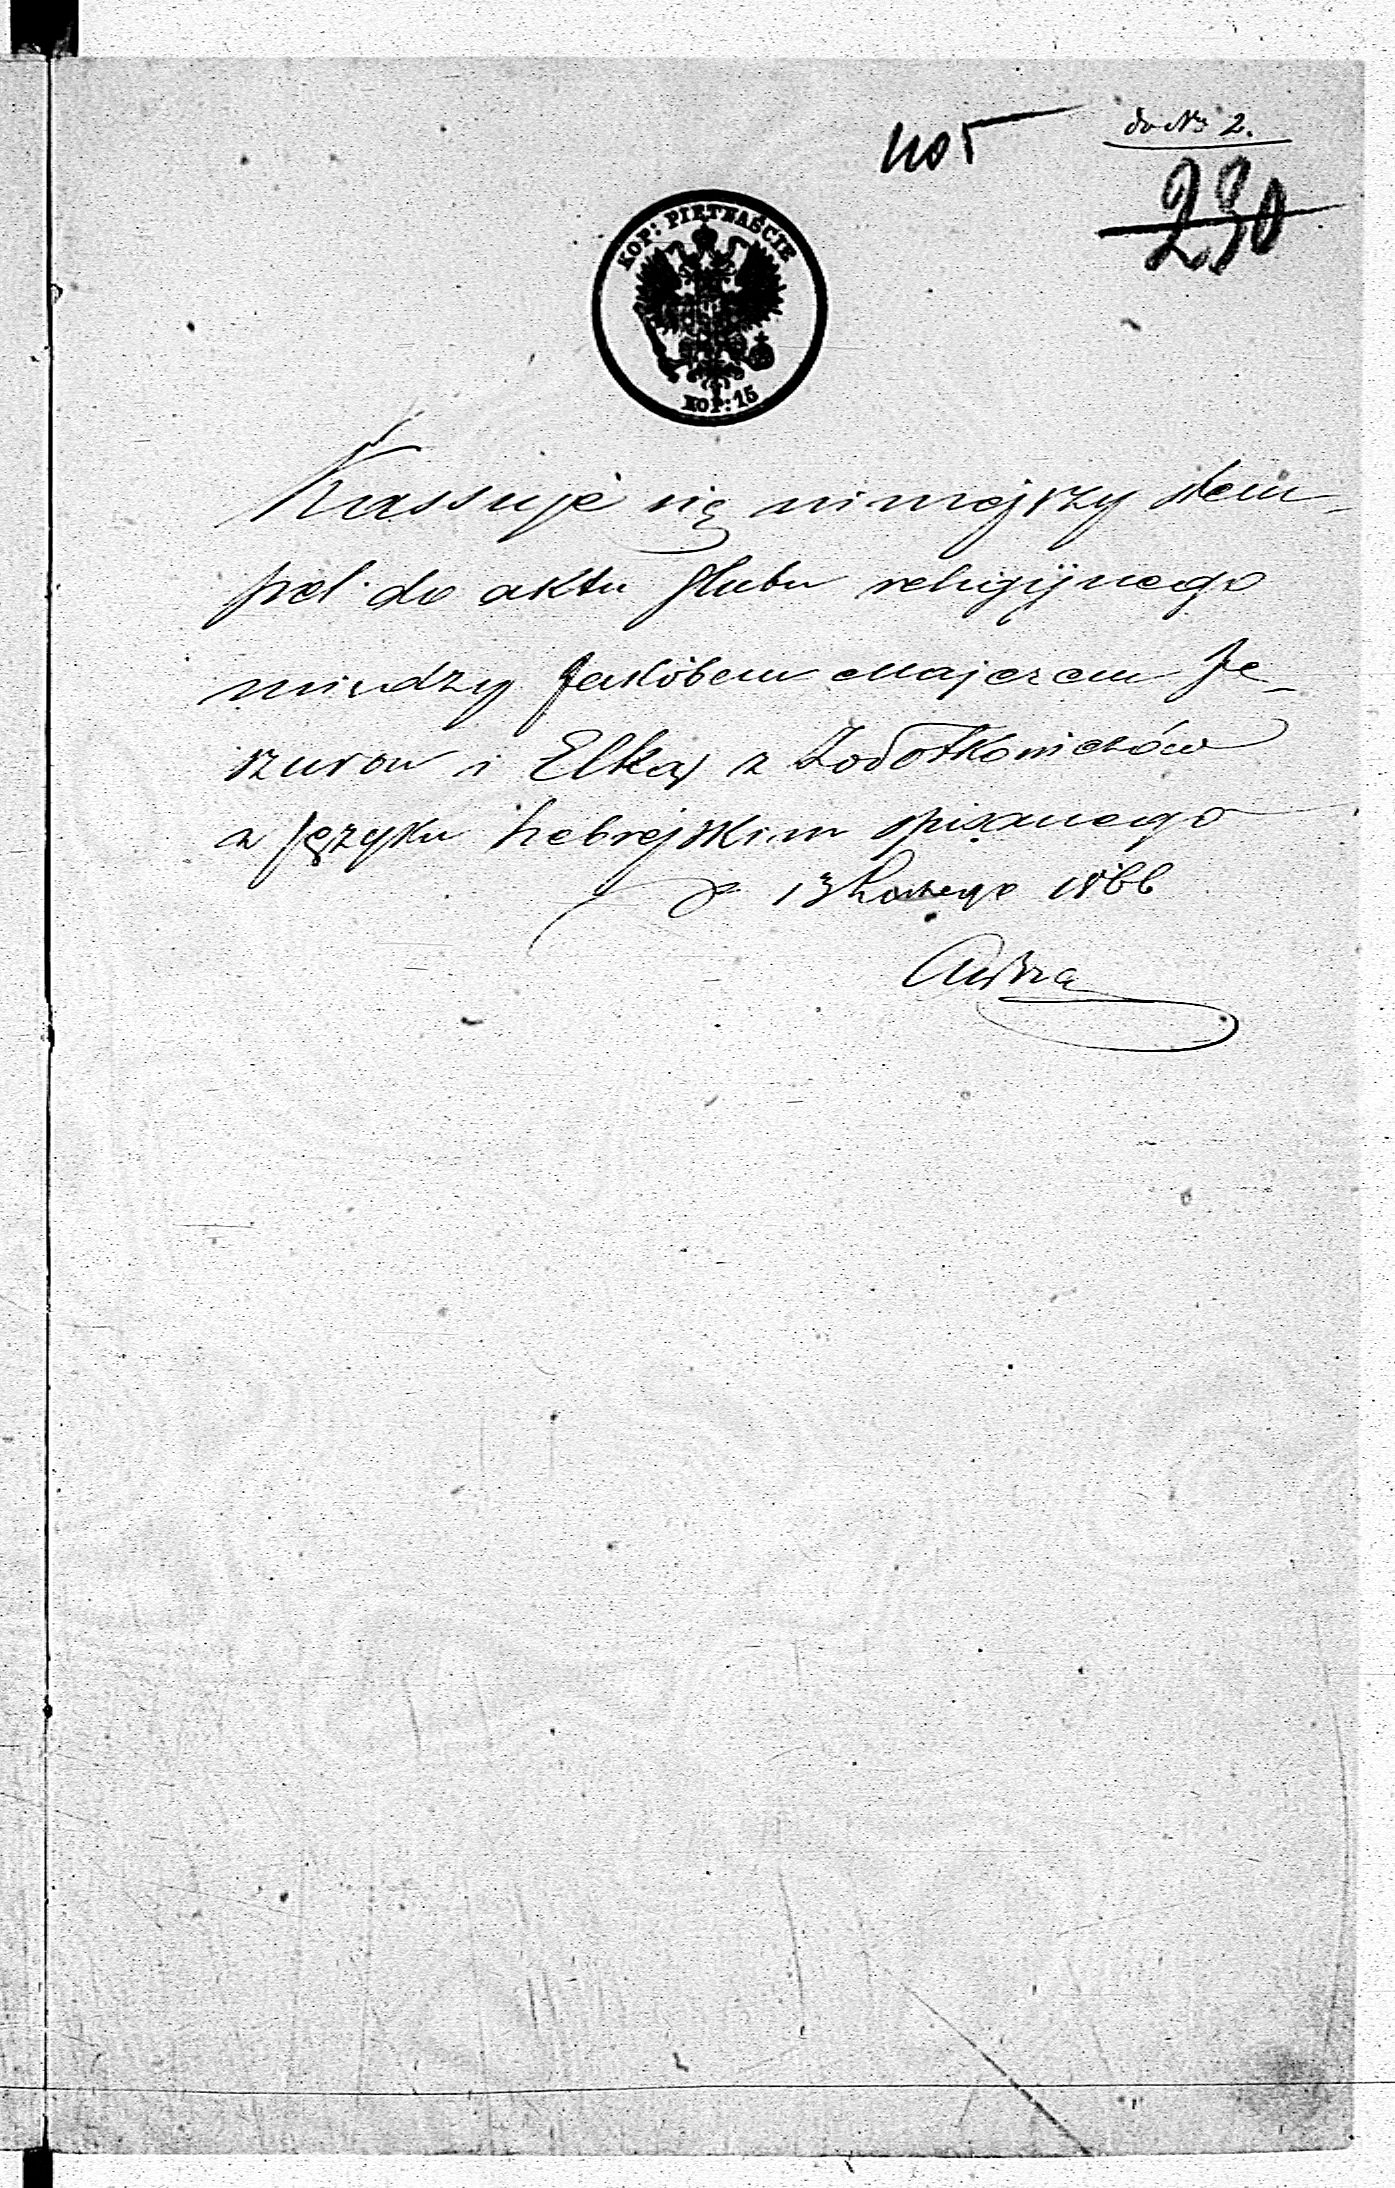 do № 2.
1105
230
KOP: PIĘTNAŚCIE
KOP: 15
Kassuje się niniejszy stem-
pel do aktu ślubu religijnego
między Jakóbem Majerem Je-
szuron i Elką z Zołotkowiczów
w języku hebrejskim spisanego
d. 13 Lutego 1866